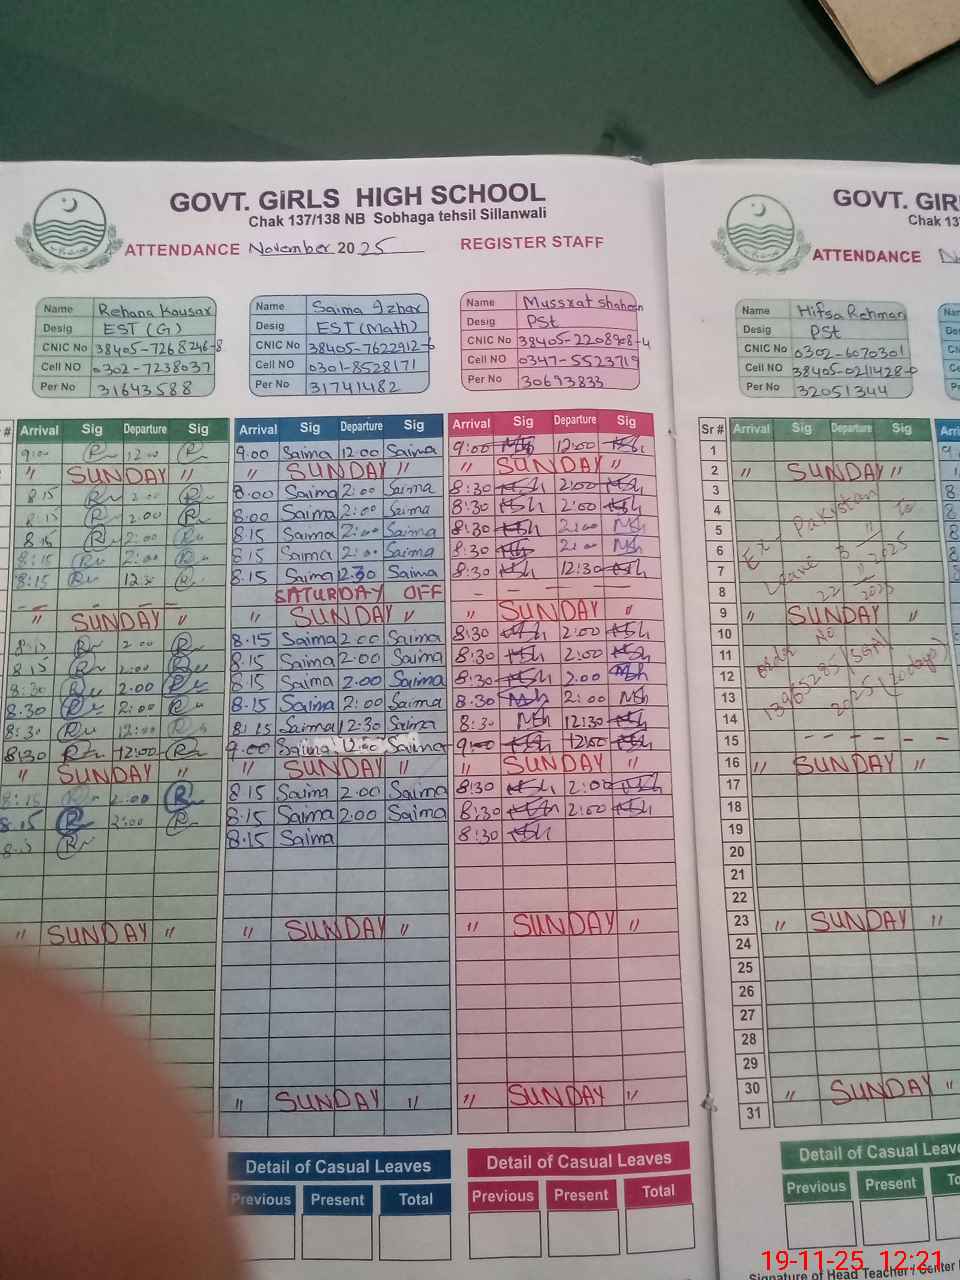 GOVT. GiRLS HIGH SCHOOL
Chak 137/138 NB Sobhaga tehsil Sillanwali
ATTENDANCE November 2025 REGISTER STAFF
Name Rehana Kousar
Desig EST (G)
CNIC No 38405-7268246-8
Cell NO 0302-7238037
Per No 31643588
Name Saima Izhar
Desig EST (Math)
CNIC No 38405-7622912-6
Cell NO 0301-8528171
Per No 31741482
Name Mussrat shaheen
Desig PSt
CNIC No 38405-2208908-4
Cell NO 0347-5523719
Per No 30693833
# Arrival Sig Departure Sig
9:00 12:00
" SUNDAY "
8:15 2:00
8:15 2:00
8:15 2:00
8:15 2:00
8:15 12:30
" SUNDAY "
8:15 2:00
8:15 2:00
8:30 2:00
8:30 2:00
8:30 12:00
8:30 12:00
" SUNDAY "
8:15 2:00
8:15 2:00
" SUNDAY "
Arrival Sig Departure Sig
9:00 Saima 12:00 Saima
" SUNDAY "
8:00 Saima 2:00 Saima
8:00 Saima 2:00 Saima
8:15 Saima 2:00 Saima
8:15 Saima 2:00 Saima
8:15 Saima 12:30 Saima
SATURDAY OFF
" SUNDAY "
8:15 Saima 2:00 Saima
8:15 Saima 2:00 Saima
8:15 Saima 2:00 Saima
8:15 Saima 2:00 Saima
8:15 Saima 12:30 Saima
9:00 Saima 12:00 Saima
" SUNDAY "
8:15 Saima 2:00 Saima
8:15 Saima 2:00 Saima
8:15 Saima
" SUNDAY "
" SUNDAY "
Arrival Sig Departure Sig
9:00 12:00
" SUNDAY "
8:30 2:00
8:30 2:00
8:30 2:00
8:30 2:00
8:30 12:30
" SUNDAY "
8:30 2:00
8:30 2:00
8:30 2:00
8:30 2:00
8:30 12:30
9:00 12:00
" SUNDAY "
8:30 2:00
8:30 2:00
8:30
" SUNDAY "
" SUNDAY "
Detail of Casual Leaves
Previous Present Total
Detail of Casual Leaves
Previous Present Total
GOVT. GIR
Chak 13
ATTENDANCE
Name Hifsa Rehman
Desig PSt
CNIC No 0302-6070301
Cell NO 38405-0211428-
Per No 32051344
Sr # Arrival Sig Departure Sig
1
2 " SUNDAY "
3
4
5
6
7
8
9 " SUNDAY "
10
11
12
13
14
15
16 " SUNDAY "
17
18
19
20
21
22
23 " SUNDAY "
24
25
26
27
28
29
30 " SUNDAY "
31
Ex-Pakistan
Leave 3/11/2025 To
22/11/2025
order No
13965285 (SGA)
2025 (20 days)
Detail of Casual Leave
Previous Present To
Signature of Head Teacher / Center
19-11-25 12:21